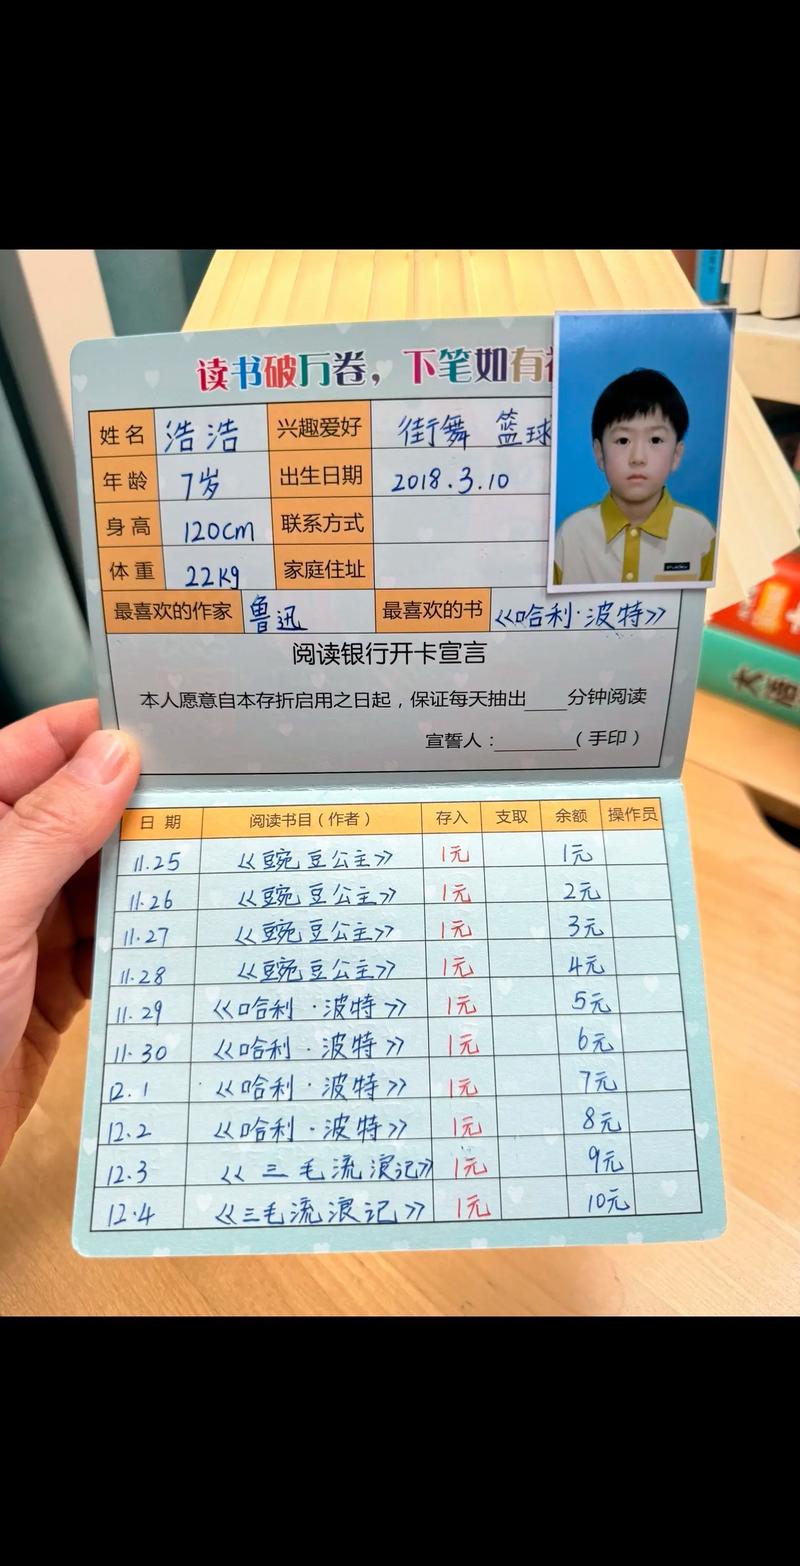 读书破万卷，下笔如有
姓名 浩浩 兴趣爱好 街舞 篮球
年龄 7岁 出生日期 2018.3.10
身高 120cm 联系方式
体重 22kg 家庭住址
最喜欢的作家 鲁迅 最喜欢的书 《哈利·波特》
阅读银行开卡宣言
本人愿意自本存折启用之日起，保证每天抽出____分钟阅读
宣誓人：________（手印）
日期 阅读书目（作者） 存入 支取 余额 操作员
11.25 《豌豆公主》 1元 1元
11.26 《豌豆公主》 1元 2元
11.27 《豌豆公主》 1元 3元
11.28 《豌豆公主》 1元 4元
11.29 《哈利·波特》 1元 5元
11.30 《哈利·波特》 1元 6元
12.1 《哈利·波特》 1元 7元
12.2 《哈利·波特》 1元 8元
12.3 《三毛流浪记》 1元 9元
12.4 《三毛流浪记》 1元 10元